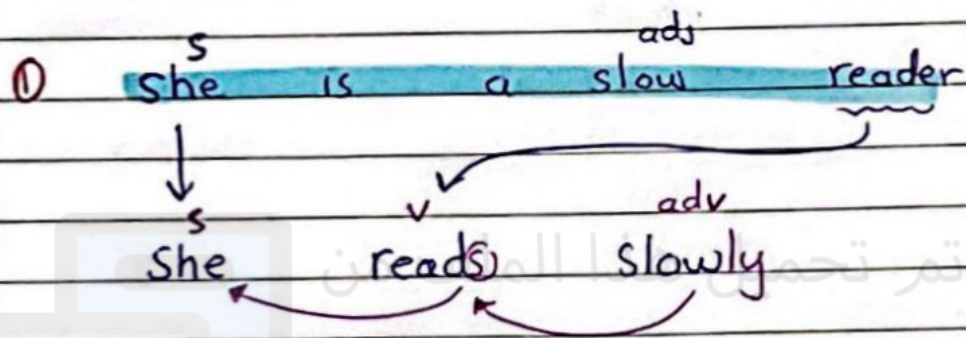 s adj
① She is a slow reader
s v adv
She read(s) slowly
تم تحميل هذا الملف من